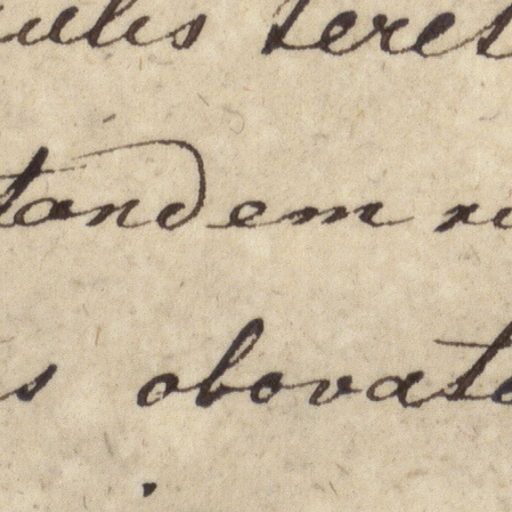 ulis teret
tandem
s obovat